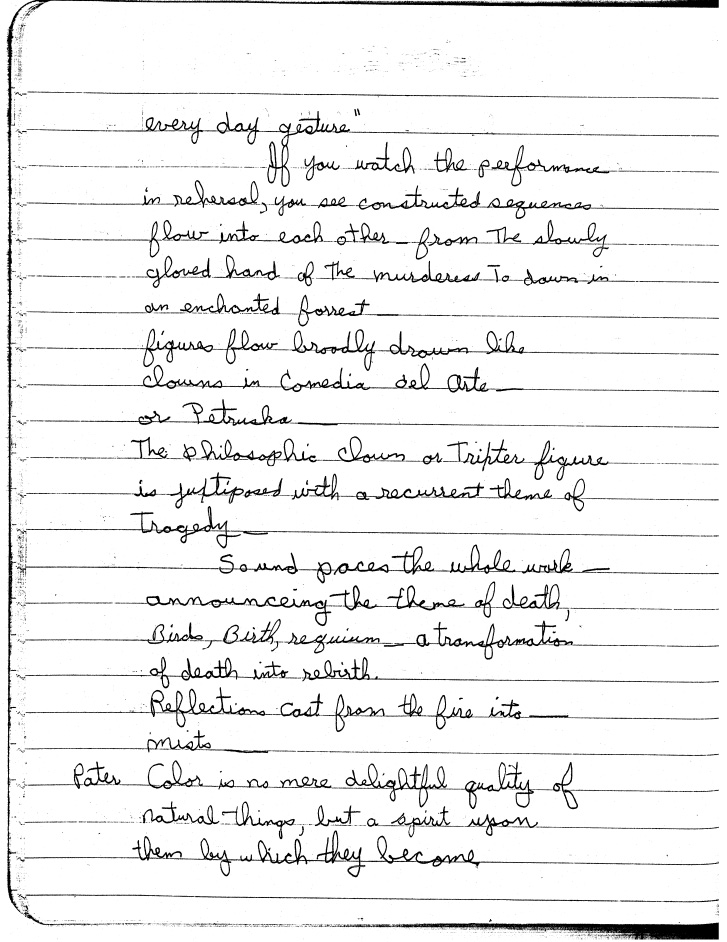 every day gesture"
If you watch the performance
in rehersal, you see constructed sequences
flow into each other — from The slowly
gloved hand of The murderess To dawn in
an enchanted forrest —
figures flow broadly drawn like
clowns in Comedia del Arte —
or Petruska —
The philosophic clown or Trixter figure
is juxtiposed with a recurrent theme of
Tragedy —
Sound paces the whole work —
announceing the theme of death,
Birds, Birth, requium — a transformation
of death into rebirth.
Reflections cast from the fire into —
mists —
Pater Color is no mere delightful quality of
natural things, but a spirit upon
them by which they become